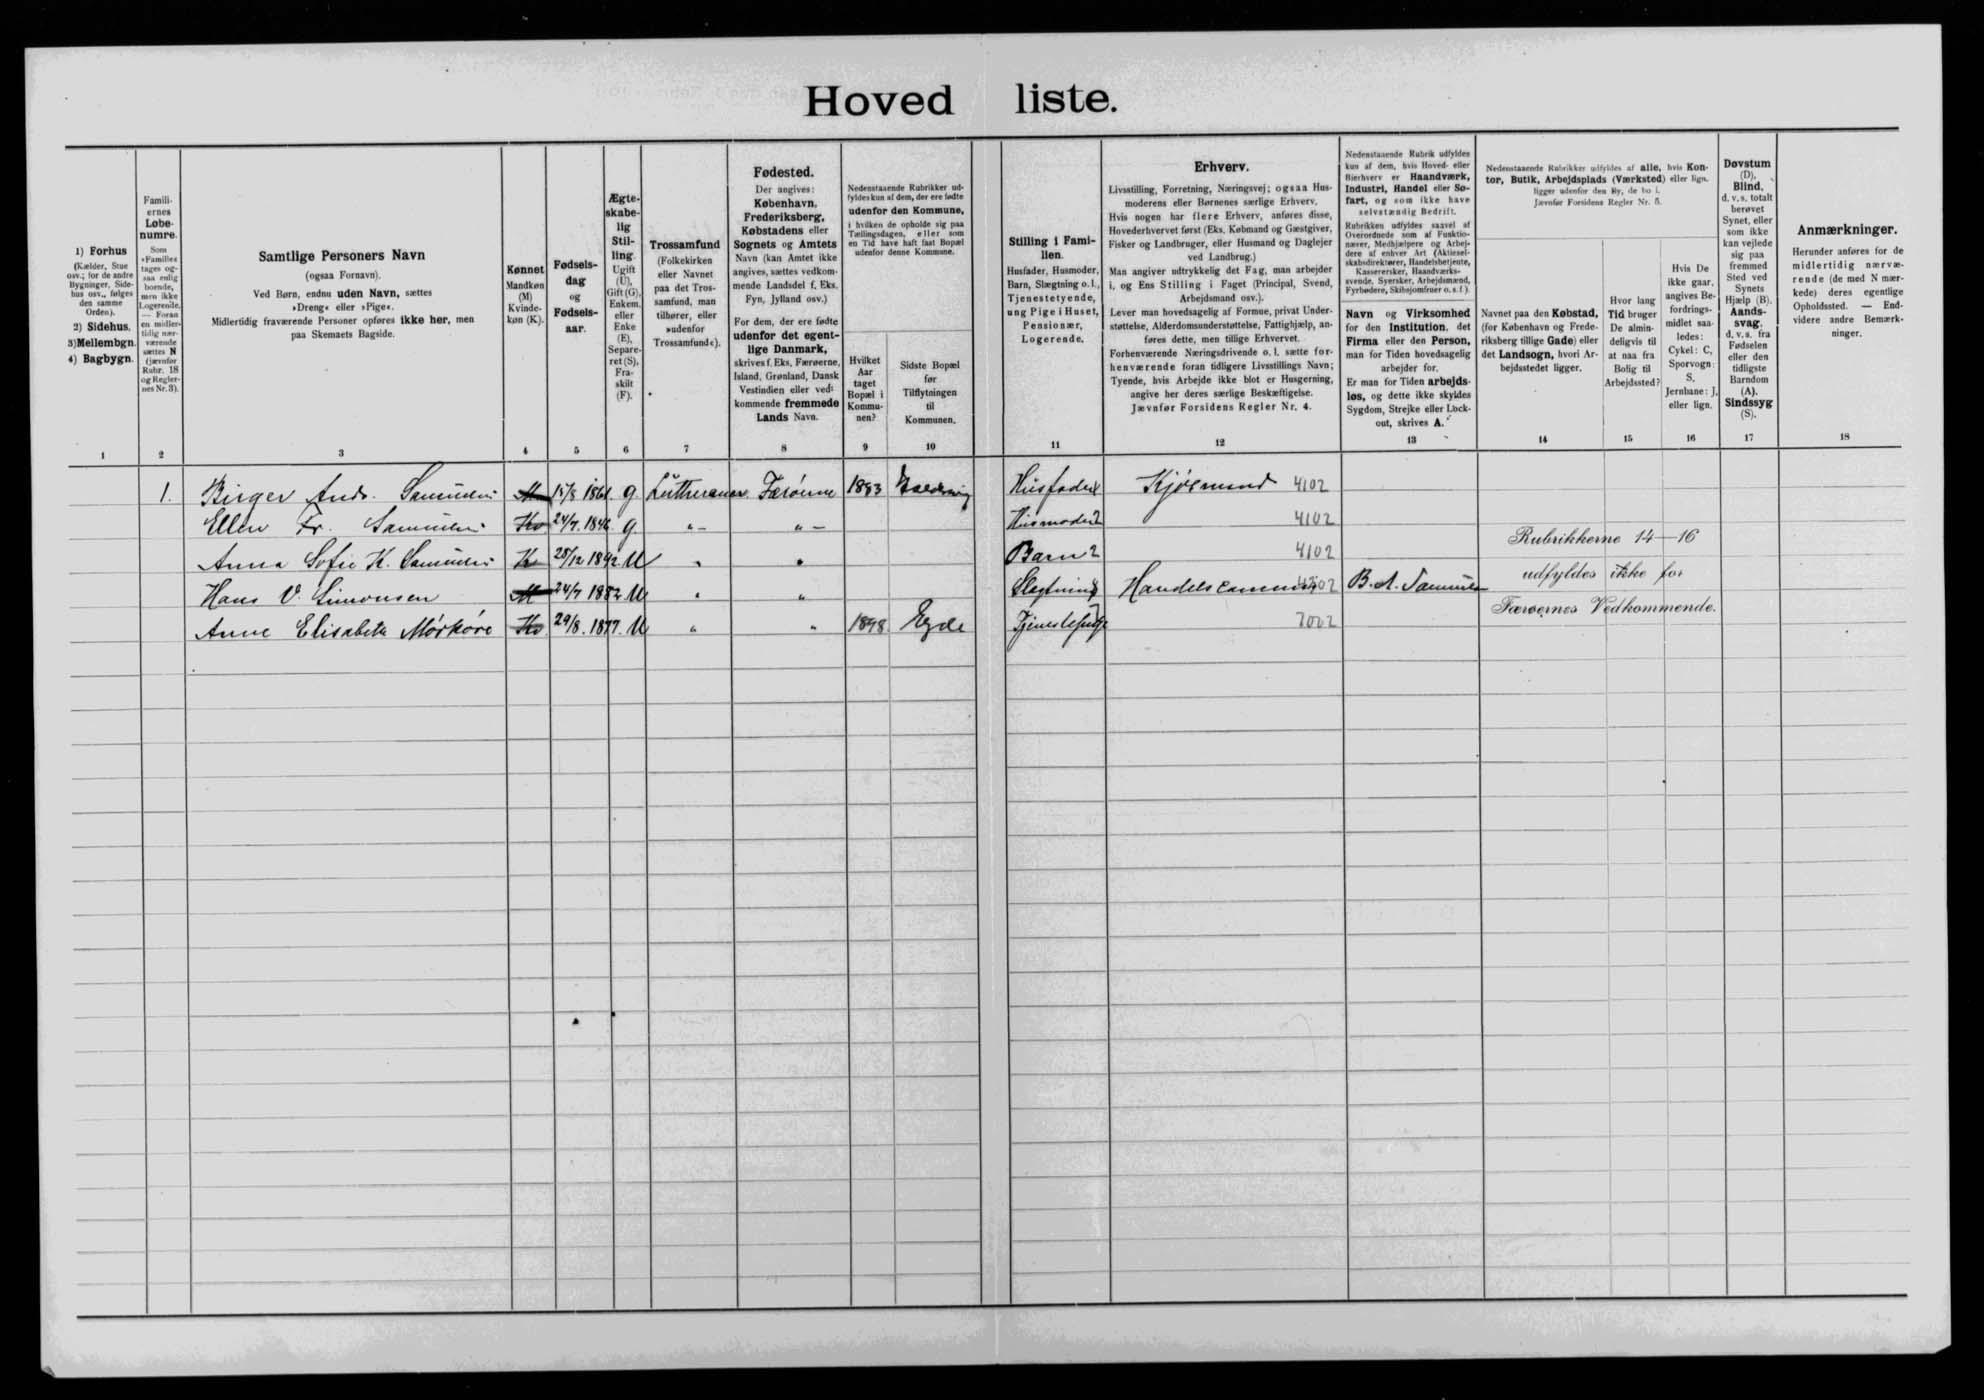 Hoved liste.
1) Forhus
(Kælder, Stue
osv.; for de andre
Bygninger, Side-
hus osv., følges
den samme
Orden).
2) Sidehus.
3) Mellembgn.
4) Bagbygn.
1
Famili-
ernes
Løbe-
numre.
Som
»Familie«
tages og-
saa enlig
boende,
men ikke
Logerende.
— Foran
en midler-
tidig nær-
værende
sættes N
(jævnfør
Rubr. 18
og Regler-
nes Nr. 3).
2
Samtlige Personers Navn
(ogsaa Fornavn).
Ved Børn, endnu uden Navn, sættes
»Dreng« eller »Pige«.
Midlertidig fraværende Personer opføres ikke her, men
paa Skemaets Bagside.
3
Kønnet
Mandkøn
(M)
Kvinde-
køn (K).
4
Fødsels-
dag
og
Fødsels-
aar.
5
Ægte-
skabe-
lig
Stil-
ling.
Ugift
(U),
Gift (G),
Enkem.
eller
Enke
(E),
Separe-
ret (S),
Fra-
skilt
(F).
6
Trossamfund
(Folkekirken
eller Navnet
paa det Tros-
samfund, man
tilhører, eller
»udenfor
Trossamfund«).
7
Fødested.
Der angives:
København,
Frederiksberg,
Købstadens eller
Sognets og Amtets
Navn (kan Amtet ikke
angives, sættes vedkom-
mende Landsdel f. Eks.
Fyn, Jylland osv.)
For dem, der ere fødte
udenfor det egent-
lige Danmark,
skrives f. Eks. Færøerne,
Island, Grønland, Dansk
Vestindien eller ved-
kommende fremmede
Lands Navn.
8
Nedenstaaende Rubrikker ud-
fyldes kun af dem, der ere fødte
udenfor den Kommune,
i hvilken de opholde sig paa
Tællingsdagen, eller som
en Tid have haft fast Bopæl
udenfor denne Kommune.
Hvilket
Aar
taget
Bopæl i
Kommu-
nen?
9
Sidste Bopæl
før
Tilflytningen
til
Kommunen.
10
Stilling i Fami-
lien.
Husfader, Husmoder,
Barn, Slægtning o. l.,
Tjenestetyende,
ung Pige i Huset,
Pensionær,
Logerende.
11
Erhverv.
Livsstilling, Forretning, Næringsvej; ogsaa Hus-
moderens eller Børnenes særlige Erhverv.
Hvis nogen har flere Erhverv, anføres disse,
Hovederhvervet først (Eks. Købmand og Gæstgiver,
Fisker og Landbruger, eller Husmand og Daglejer
ved Landbrug.)
Man angiver udtrykkelig det Fag, man arbejder
i, og Ens Stilling i Faget (Principal, Svend,
Arbejdsmand osv.).
Lever man hovedsagelig af Formue, privat Under-
støttelse, Alderdomsunderstøttelse, Fattighjælp, an-
føres dette, men tillige Erhvervet.
Forhenværende Næringsdrivende o. l. sætte for-
henværende foran tidligere Livsstillings Navn;
Tyende, hvis Arbejde ikke blot er Husgerning,
angive her deres særlige Beskæftigelse.
Jævnfør Forsidens Regler Nr. 4.
12
Nedenstaaende Rubrik udfyldes
kun af dem, hvis Hoved- eller
Bierhverv er Haandværk,
Industri, Handel eller Sø-
fart, og som ikke have
selvstændig Bedrift.
Rubrikken udfyldes saavel af
Overordnede som af Funktio-
nærer, Medhjælpere og Arbej-
dere af enhver Art (Aktiesel-
skabsdirektører, Handelsbetjente,
Kassererske, Haandværks-
svende, Syersker, Arbejdsmænd,
Fyrbødere, Skibsjomfruer o. s. f.).
Navn og Virksomhed
for den Institution, det
Firma eller den Person,
man for Tiden hovedsagelig
arbejder for.
Er man for Tiden arbejds-
løs, og dette ikke skyldes
Sygdom, Strejke eller Lock-
out, skrives A.
13
Nedenstaaende Rubrikker udfyldes af alle, hvis Kon-
tor, Butik, Arbejdsplads (Værksted) eller lign.
ligger udenfor den By, de bo i.
Jævnfør Forsidens Regler Nr. 5.
Navnet paa den Købstad,
(for København og Frede-
riksberg tillige Gade) eller
det Landsogn, hvori Ar-
bejdsstedet ligger.
14
Hvor lang
Tid bruger
De almin-
deligvis til
at naa fra
Bolig til
Arbejdssted?
15
Hvis De
ikke gaar,
angives Be-
fordrings-
midlet saa-
ledes:
Cykel: C,
Sporvogn:
S,
Jernbane: J,
eller lign.
16
Døvstum
(D).
Blind,
d. v. s. totalt
berøvet
Synet, eller
som ikke
kan vejlede
sig paa
fremmed
Sted ved
Synets
Hjælp (B).
Aands-
svag,
d. v. s. fra
Fødselen
eller den
tidligste
Barndom
(A).
Sindssyg
(S).
17
Anmærkninger.
Herunder anføres for de
midlertidig nærvæ-
rende (de med N mær-
kede) deres egentlige
Opholdssted. — End-
videre andre Bemærk-
ninger.
18
1. Birger Andr. Samuelsen M 15/8 1861 g. Lutheraner Færöerne 1893 Husfader Kjöbmand 4102
Ellen Fr. Samuelsen Kv 24/7. 1846 g. „ – „ – Husmoder 2 4102
Anna Sofie K. Samuelsen K 28/12 1892 U „ „ Barn 2 4102
Hans V. Simonsen M 24/7 1882 U „ „ Slægtning B. A. Samuelsen
Anne Elisabeth Mórköre Kv 29/8. 1877. U „ „ 1898. Tjenestepige 7002
Rubrikkerne 14—16
udfyldes ikke for
Færøernes Vedkommende.